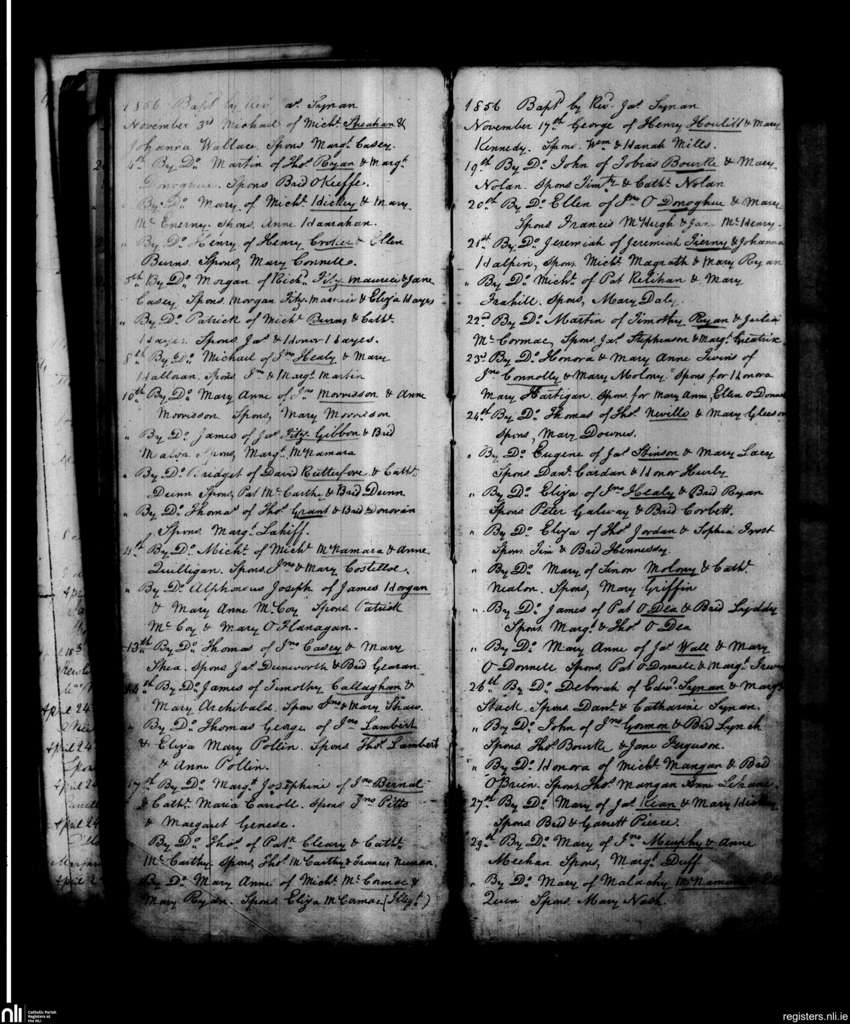 1856 Bapd by Rev Jas. Synan
November 3rd Michael of Michl. Sheahan &
Johanna Wallace. Spons Margt. Casey.
4th By Do. Martin of Thos Ryan & Margt.
Donoghue. Spons Brid O'Keeffe.
" By Do. Mary of Michl. Hickey & Mary
McEnerny. Spons. Anne Hanrahan.
" By Do. Henry of Henry & Ellen
Burns. Spons, Mary Connells.
5th By Do. Morgan of Richd. Fitz Maurice & Jane
Casey. Spons Morgan Fitz-Maurice & Eliza Hayes
" By Do. Patrick of Michl Burns & Cathe.
Hayes. Spons Jas & Honor Hayes.
8th By Do. Michael of Jno Healy & Mary
Halloran. Spons Jno & Margt. Martin
10th By Do. Mary Anne of Jno Morrisson & Anne
Morrisson Spons, Mary Morrisson
" By Do. James of Jas Fitz Gibbon & Brid
Spons, Margt. McNamara
" By Do. Bridget of David & Cathe.
Dunn Spons, Pat McCarthy & Brid Dunn
" By Do. Thomas of Thos Grant & Brid Donovan
Spons Margt. Lahiff.
11th By Do. Michl. of Michl McNamara & Anne
Quilligan. Spons. Jno & Mary Costelloe.
" By Do. Alphonsus Joseph of James Horgan
& Mary Anne McCoy Spons Patrick
McCoy & Mary O'Flanagan.
13th By Do. Thomas of Jno Casey & Mary
Shea. Spons Jas & Brid Gearan
16th By Do. James of Timothy Callaghan &
Mary Archibald. Spons Jno & Mary Shaw.
" By Do. Thomas George of Jno Lambert
& Eliza Mary Pollin. Spons Thos. Lambert
& Anne Pollin.
17th By Do. Margt. Josephine of Jno Bernal
& Cathe. Maria Carroll. Spons Jno Pitts
& Margaret Genese.
By Do. Thos. of Patk. Cleary & Cathe.
McCarthy. Spons, Thos McCarthy & Frances Neenan.
By Do. Mary Anne of Michl. McCormac &
Mary Ryan. Spons Eliza McCormac (Illegt.)
1856 Bapd by Rev. Jas Synan
November 17th George of Henry & Mary
Kennedy. Spons. Wm & Hanah Mills.
19th By Do. John of Tobias Bourke & Mary
Nolan. Spons Timy. & Cathe. Nolan
20th By Do. Ellen of Jno O Donoghue & Mary
Spons Francis McHugh & Jane McHeary.
21st By Do. Jeremiah of Jeremiah Tierny & Johanna
Halpin, Spons Michl Magrath & Mary Ryan
" By Do. Michl. of Pat Relihan & Mary
Frahill. Spons, Mary Daly.
22nd By Do. Martin of Timothy Ryan & Julia
McCormac, Spons Jas Stephenson & Margt.
23d By Do. Honora & Mary Anne Twins of
Jno Connolly & Mary Molony. Spons for Honora
Mary Hartigan. Spons for Mary Anne, Ellen O'Donnell
24th By Do. Thomas of Thos. Neville & Mary Gleeson
Spons, Mary Downes.
" By Do. Eugene of Jas Stinson & Mary Lacy
Spons Danl. Cardan & Honor Hurly
" By Do. Eliza of Jno Healy & Brid Ryan
Spons Peter Galway & Brid Corbett.
" By Do. Eliza of Thos Jordan & Sophia Frost
Spons Jim & Brid Hennessy.
" By Do. Mary of Simon Molony & Cathe.
Nealon. Spons, Mary Griffin
" By Do. James of Pat O Dea & Brid Lyddy
Spons Margt. & Thos O Dea
" By Do. Mary Anne of Jas Wall & Mary
O Donnell Spons, Pat O'Donnell & Margt.
26th By Do. Deborah of Edwd. Synan & Margt
Stack. Spons Danl. & Catharine Synan.
" By Do. John of Jno Gorman & Brid Lynch
Spons Thos Bourke & Jane Ferguson.
" By Do. Honora of Michl Mangan & Brid
O'Brien. Spons Thos. Mangan Anne
27th By Do. Mary of Jas Kean & Mary Hickey
Spons Brid & Garrett Pierce.
29th By Do. Mary of Jno Murphy & Anne
Meehan Spons, Margt. Duff
" By Do. Mary of Malachy McNamara &
Quin Spons Mary Nash.
April 24
April 24
April 24
April 24
nli
Catholic Parish
Registers at
the NLI
registers.nli.ie